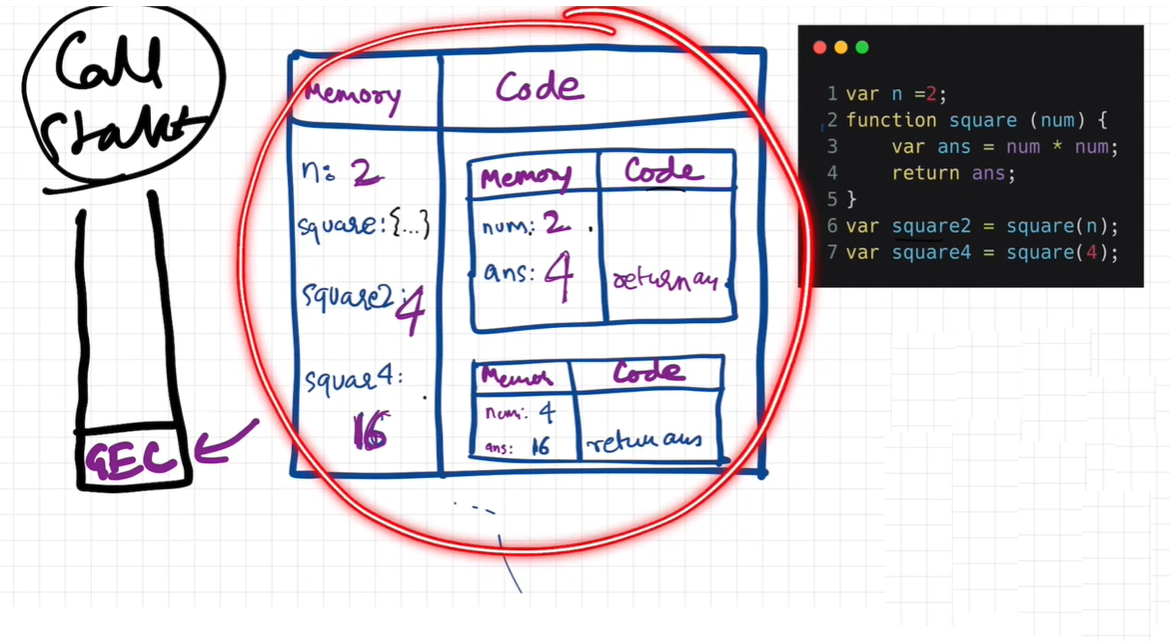 Call
Stack
GEC
Memory
Code
n: 2
square: {...}
square2: 4
squar4:
16
Memory
Code
num: 2
ans: 4
return
Code
num: 4
ans: 16
return ans
1 var n =2;
2 function square (num) {
3 var ans = num * num;
4 return ans;
5 }
6 var square2 = square(n);
7 var square4 = square(4);